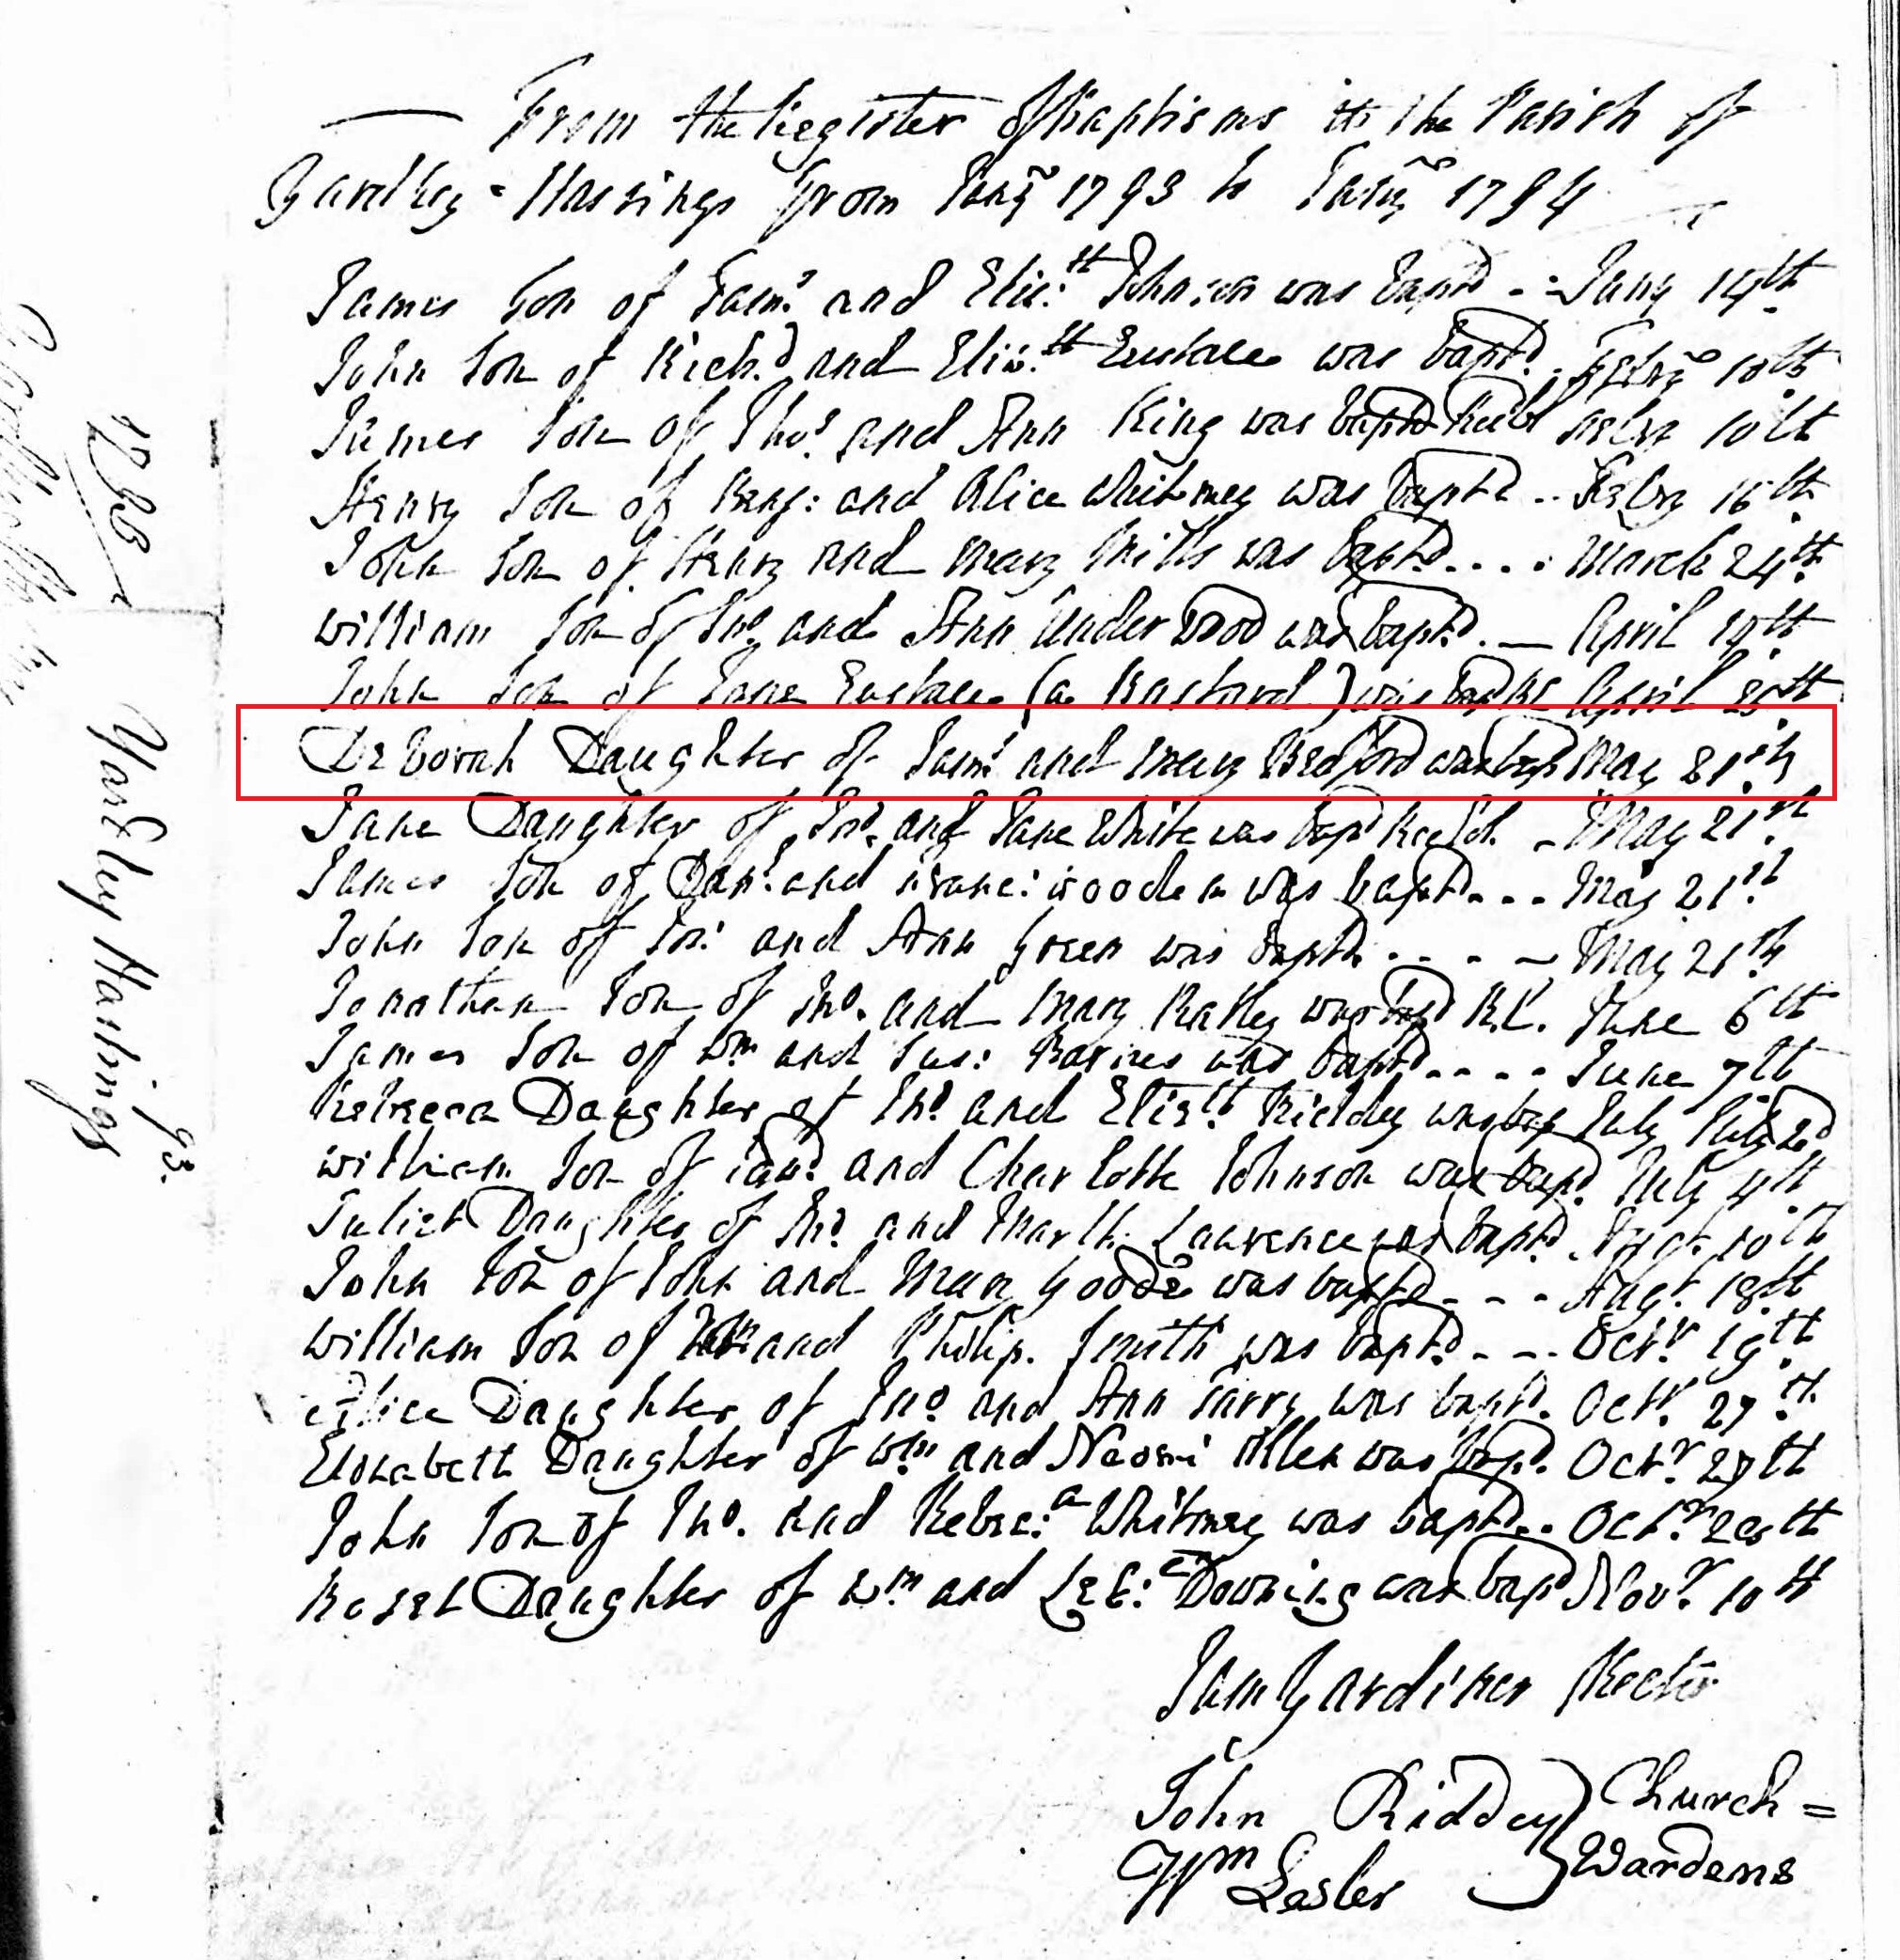 From the Register of Baptisms in the Parish of
Yardley = Hastings from Jany 1793 to Jany 1794
James Son of Sam.l and Eliz:th Johnson was bapd Jany 14th
John Son of Rich.d and Eliz.th Eustace was bapt.d Febry 10th
James Son of Tho.s and Ann King was baptd Febry 10th
Henry Son of Benj: and Alice Whitmey was baptd .. Febry 16th
John Son of Henry and Mary Mills was baptd .... March 24th
William Son of Jno and Ann Underwood was bapt.d. — April 14th
John Son of Jane Eustace (a Bastard) was April 25th
Deborah Daughter of Sam.l and Mary Bedford was bap May 21th
Jane Daughter of Jno. and Jane White was bapd May 21th
James Son of Dan.l and Wooden was baptd... May 21th
John Son of and Ann Green was baptd .... May 21th
Jonathan Son of Jno. and Mary Ratley was bapd June 6th
James Son of Wm and Sus: Barnes was baptd.... June 7th
Rebecca Daughter of Jno and Eliz:th Riddey was bap July July 2d
William Son of and Charlotte Johnson was bapd. July 4th
Juliet Daughter of Jno and Marth. Laurence was bapt.d Augt. 10th
John Son of John and Mary Goode was baptd... Augt. 18th
William Son of and Philip. Smith was bapt.d ... Octr. 19th
Alice Daughter of Jno and Ann Tarry was bapt.d. Octr. 27th
Elizabeth Daughter of Wm and Naomi Allen was bapd. Octr 27th
John Son of Jno. and Rebec:a Whitmey was baptd.. Octr
Daughter of Wm and Downing was bapd Novr. 10th
Sam Gardiner Rector
John Riddey } Church =
Wm Lasler } Wardens
1793
Yardley Hastings
93.